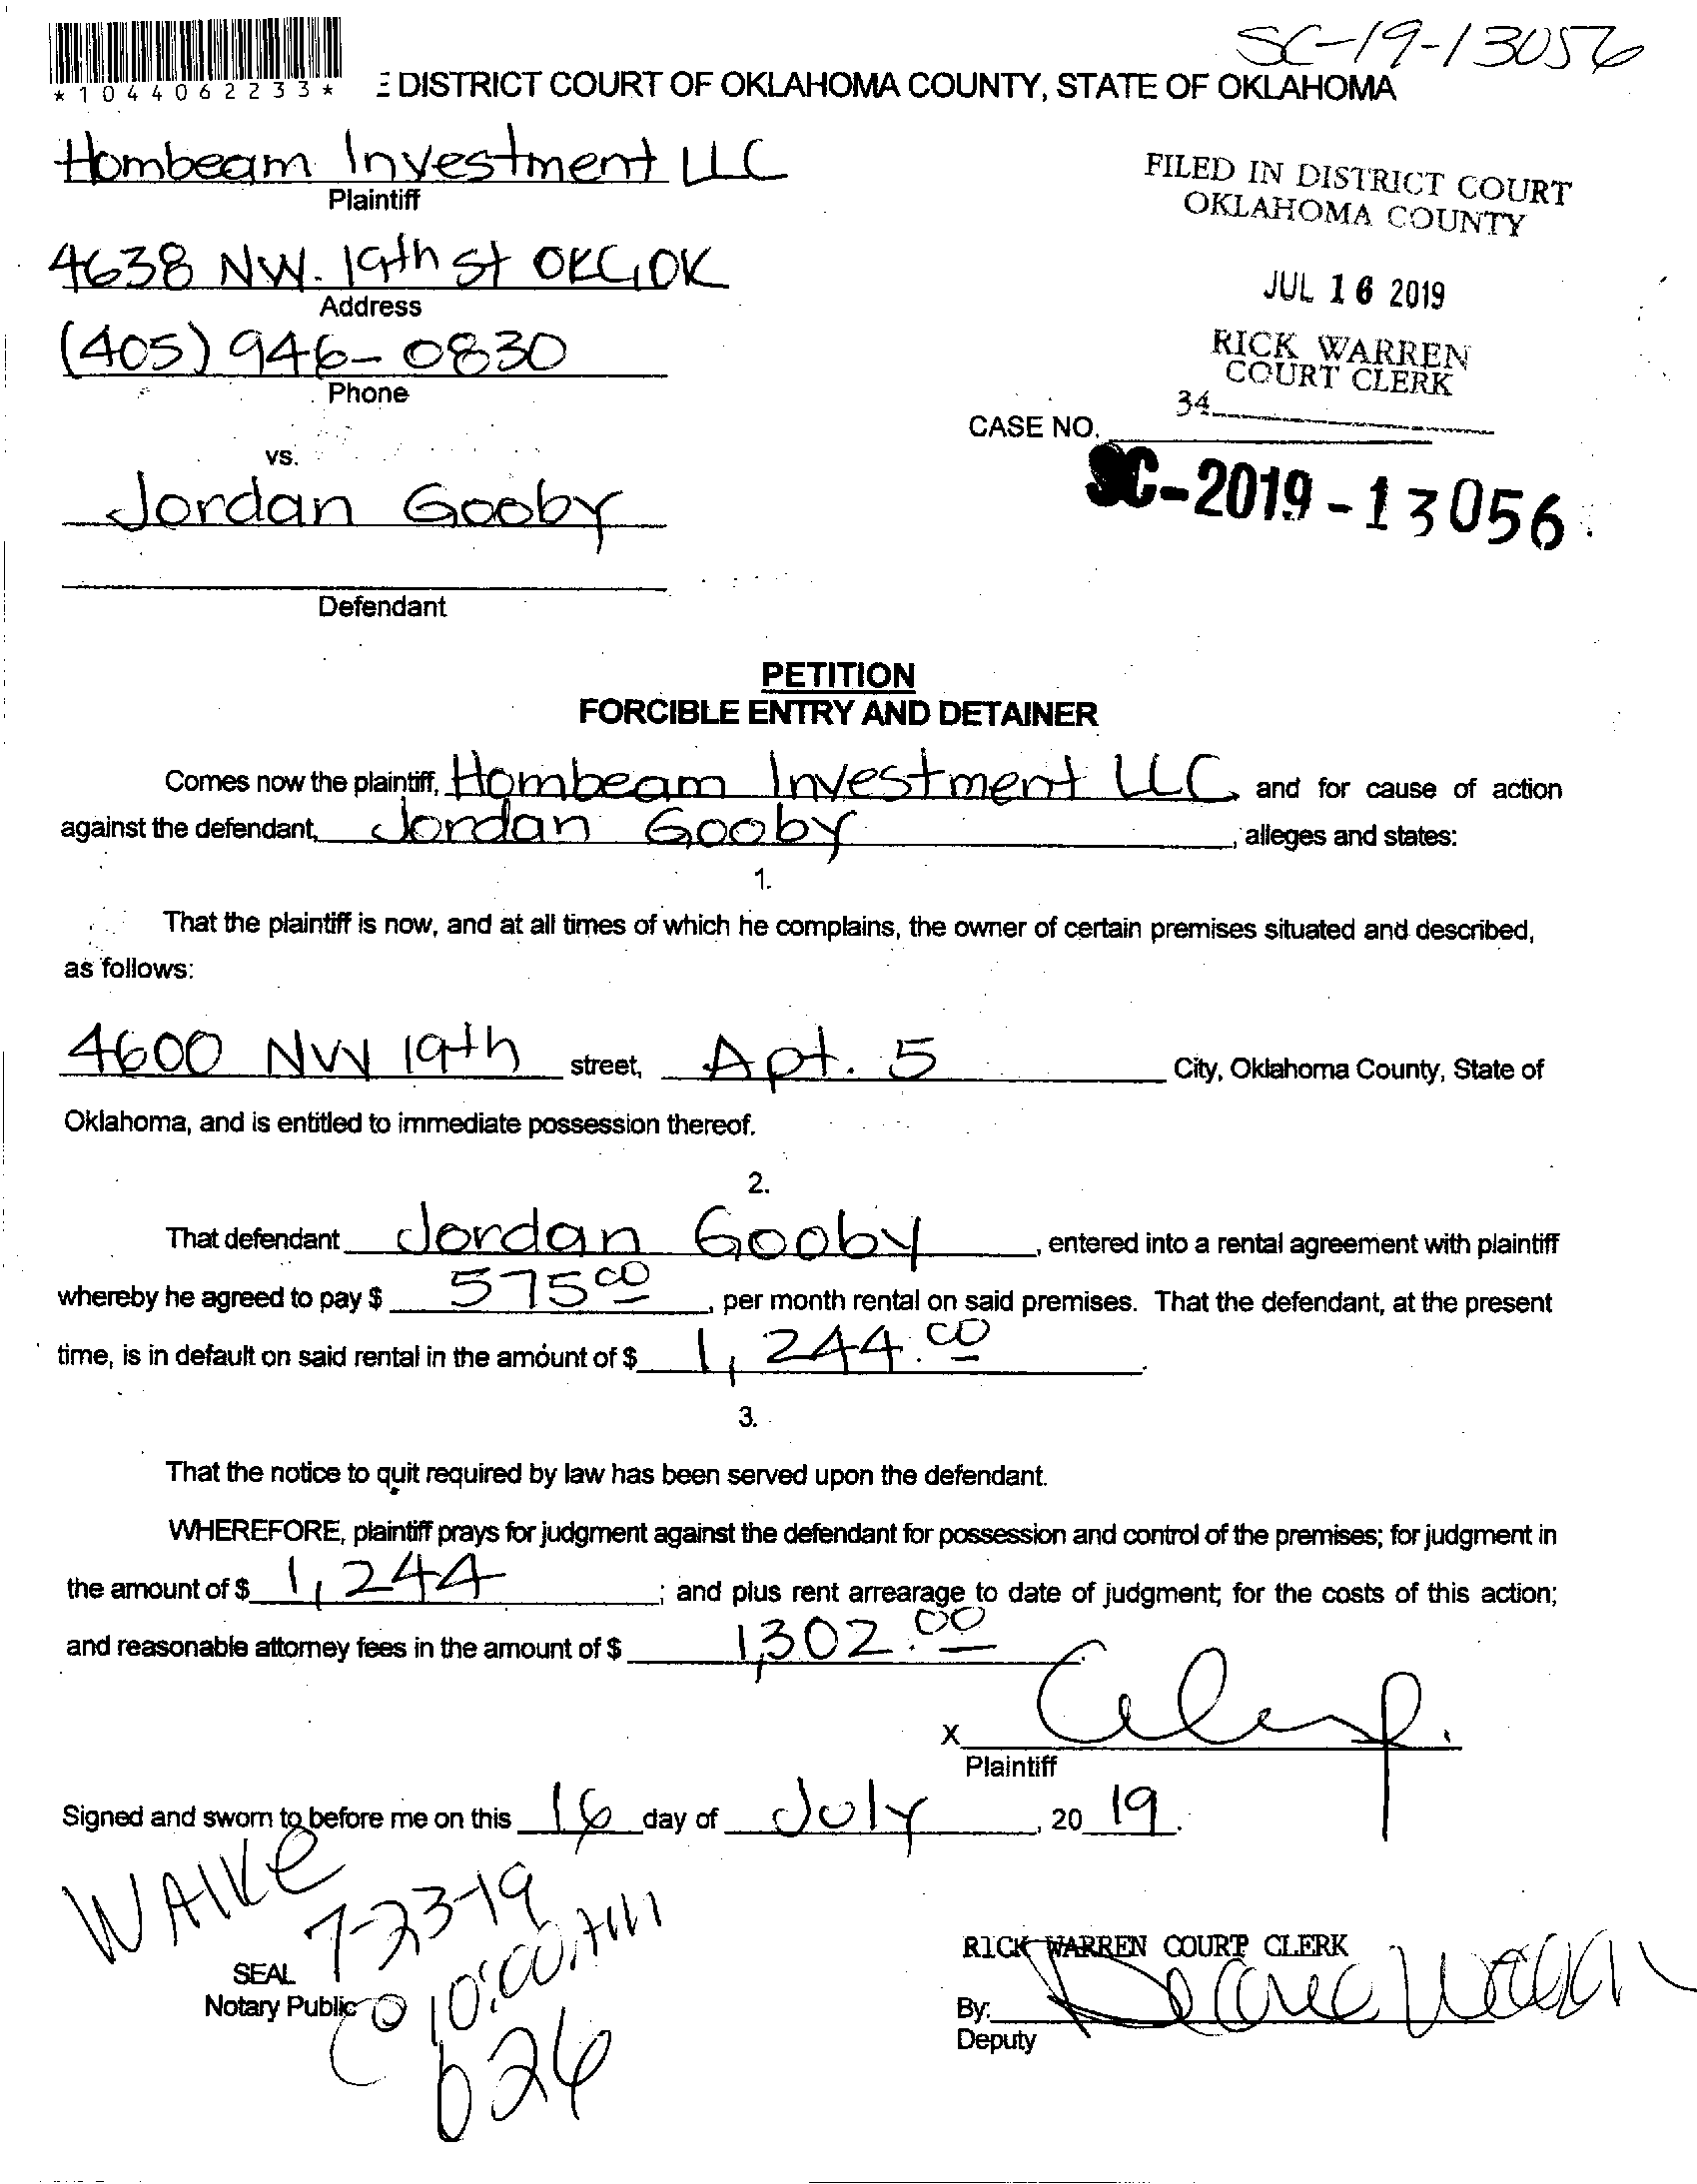 SC-19-13056
*1044062233*
E DISTRICT COURT OF OKLAHOMA COUNTY, STATE OF OKLAHOMA
Hombeam Investment LLC
Plaintiff
4638 NW. 19th St OKC, OK
Address
(405) 946-0830
Phone
vs.
Jordan Gooby
Defendant
FILED IN DISTRICT COURT
OKLAHOMA COUNTY
JUL 16 2019
RICK WARREN
COURT CLERK
34
CASE NO.
SC-2019-13056
PETITION
FORCIBLE ENTRY AND DETAINER
Comes now the plaintiff, Hombeam Investment LLC, and for cause of action
against the defendant, Jordan Gooby, alleges and states:
1.
That the plaintiff is now, and at all times of which he complains, the owner of certain premises situated and described,
as follows:
4600 NW 19th street, Apt. 5 City, Oklahoma County, State of
Oklahoma, and is entitled to immediate possession thereof.
2.
That defendant Jordan Gooby, entered into a rental agreement with plaintiff
whereby he agreed to pay $ 575 00, per month rental on said premises. That the defendant, at the present
time, is in default on said rental in the amount of $ 1,244.00.
3.
That the notice to quit required by law has been served upon the defendant.
WHEREFORE, plaintiff prays for judgment against the defendant for possession and control of the premises; for judgment in
the amount of $ 1,244; and plus rent arrearage to date of judgment; for the costs of this action;
and reasonable attorney fees in the amount of $ 1,302.00
X
Plaintiff
Signed and sworn to before me on this 16 day of July, 20 19.
WAIVE
7-23-19
@ 10:00 AM
626
SEAL
Notary Public
RICK WARREN COURT CLERK
By:
Deputy